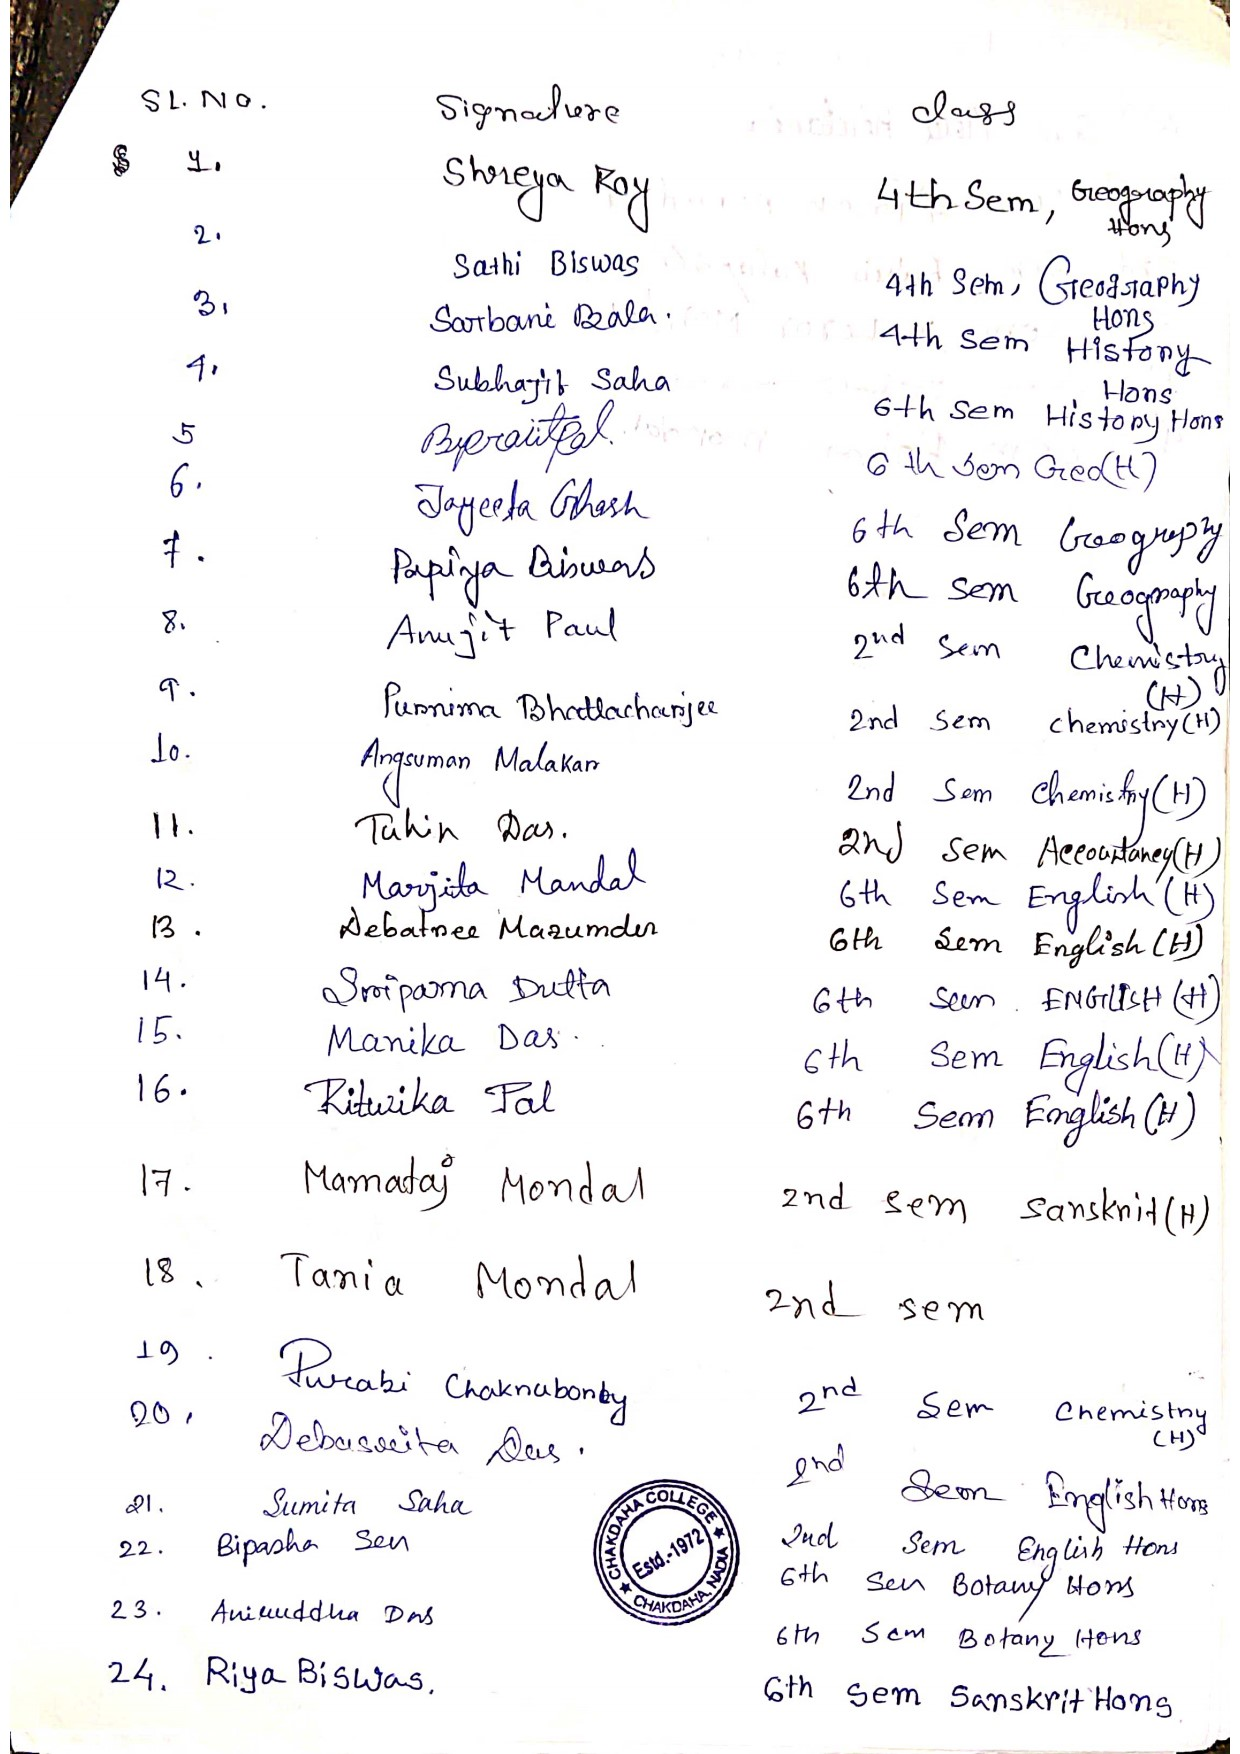 SL. NO. Signature class
1. Shreya Roy 4th Sem, Geography
Hons
2. Sathi Biswas 4th Sem, Geography
Hons
3. Sarbani Bala. 4th Sem History
Hons
4. Subhajit Saha 6th Sem History Hons
5 6th Sem Geo(H)
6. Jayeeta Ghosh 6th Sem Geography
7. Papiya Biswas 6th sem Geography
8. Anujit Paul 2nd Sem Chemistry
(H)
9. Purnima Bhattacharjee 2nd Sem chemistry(H)
10. Angsuman Malakar 2nd Sem Chemistry(H)
11. Tuhin Das. 2nd Sem Accountancy(H)
12. Mandal 6th Sem English (H)
13. Debatree Mazumder 6th Sem English (H)
14. Sriparna Dutta 6th Sem ENGLISH (H)
15. Manika Das. 6th Sem English(H)
16. Rituzika Pal 6th Sem English(H)
17. Mamataj Mondal 2nd sem Sanskrit(H)
18. Tania Mondal 2nd sem
19. Purabi Chakraborty 2nd Sem Chemistry
(H)
20. Das. 2nd Sem English Hons
21. Sumita Saha 2nd Sem English Hons
22. Bipasha Sen 6th Sem Botany Hons
23. Aniruddha Das 6th Sem Botany Hons
24. Riya Biswas. 6th Sem Sanskrit Hons
CHAKDAHA COLLEGE
Estd.-1972
CHAKDAHA, NADIA